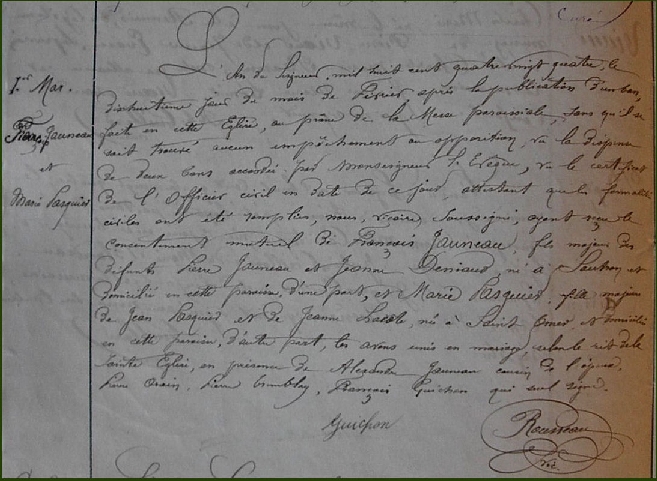 L'An du Seigneur, mil huit cent quatre vingt quatre le
dixhuitième jour du mois de Février après la publication d'un ban,
faite en cette Eglise, au prône de la Messe paroissiale, sans qu'il se
soit trouvé aucun empêchement ou opposition, vu la dispense
de deux bans accordée par Monseigneur l'Evêque, vu le certificat
de l'Officier civil en date de ce jour, attestant que les formalités
civiles ont été remplies, nous, vicaire soussigné, ayant reçu le
consentement mutuel de François Jauneau, fils majeur des
défunts Pierre Jauneau et Jeanne Deniaud, né à Sautron et
domicilié en cette paroisse, d'une part, et Marie Pasquier, fille majeure
de Jean Pasquier et de Jeanne, née à Saint Omer, et domiciliée
en cette paroisse, d'autre part, les avons unis en mariage, selon le rit de la
Sainte Eglise, en présence de Alexandre Jauneau cousin de l'époux,
Pierre, Pierre, François Guichon qui ont signé.
Guichon
Rousseau
vic
1er Mar.
Jauneau
et
Marie Pasquier